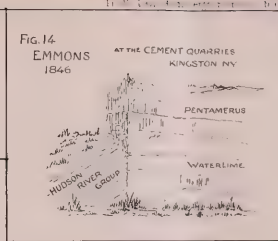 FIG. 14
EMMONS
1846
AT THE CEMENT QUARRIES
KINGSTON NY
PENTAMERUS
WATERLIME
HUDSON RIVER GROUP